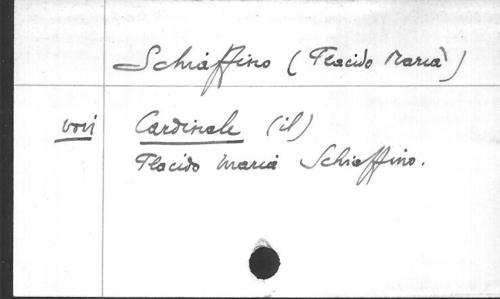 Schiaffino (Placido Maria)
vovi Cardinale (il)
Placido Maria Schiaffino.